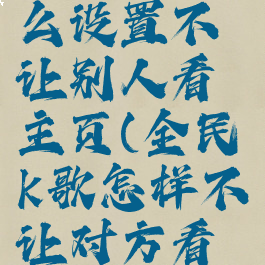 么设置不
让别人看
主页(全民
k歌怎样不
让对方看